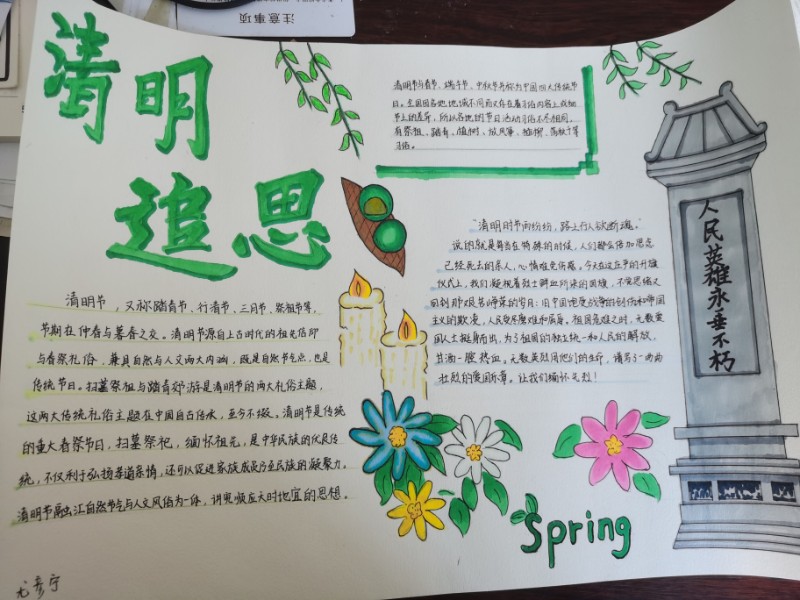 注意事项
清明
追思
清明节与春节、端午节、中秋节并称为中国四大传统节
日。全国因各地地域不同而又存在着习俗内容上或细
节上的差异,所以各地的节日活动习俗不尽相同。
有祭祖、踏青、植树、放风筝、插柳、荡秋千等
习俗。
清明节,又称踏青节、行清节、三月节、祭祖节等,
节期在仲春与暮春之交。清明节源自上古时代的祖先信仰
与春祭礼俗,兼具自然与人文两大内涵,既是自然节气点,也是
传统节日。扫墓祭祖与踏青郊游是清明节的两大礼俗主题,
这两大传统礼俗主题在中国自古传承,至今不辍。清明节是传统
的重大春祭节日,扫墓祭祀,缅怀祖先,是中华民族的优良传
统,不仅利于弘扬孝道亲情,还可以促进家族成员乃至民族的凝聚力。
清明节融汇自然节气与人文风俗为一体,讲究顺应天时地宜的思想。
"清明时节雨纷纷,路上行人欲断魂。"
说的就是每当在特殊的时候,人们都会倍加思念
已经死去的亲人,心情难免伤痛。今天在这庄严的升旗
仪式上,我们凝视着烈士鲜血所染的国旗,不禁思绪又
回到那艰苦峥嵘的岁月:旧中国饱受战争的创伤和帝国
主义的欺凌,人民受尽磨难和屈辱。祖国危难之时,无数爱
国人士挺身而出,为了祖国的独立统一和人民的解放,
甘洒一腔热血。无数英烈用他们的生命,谱写了一曲曲
壮烈的爱国乐章。让我们缅怀先烈!
人民英雄永垂不朽
Spring